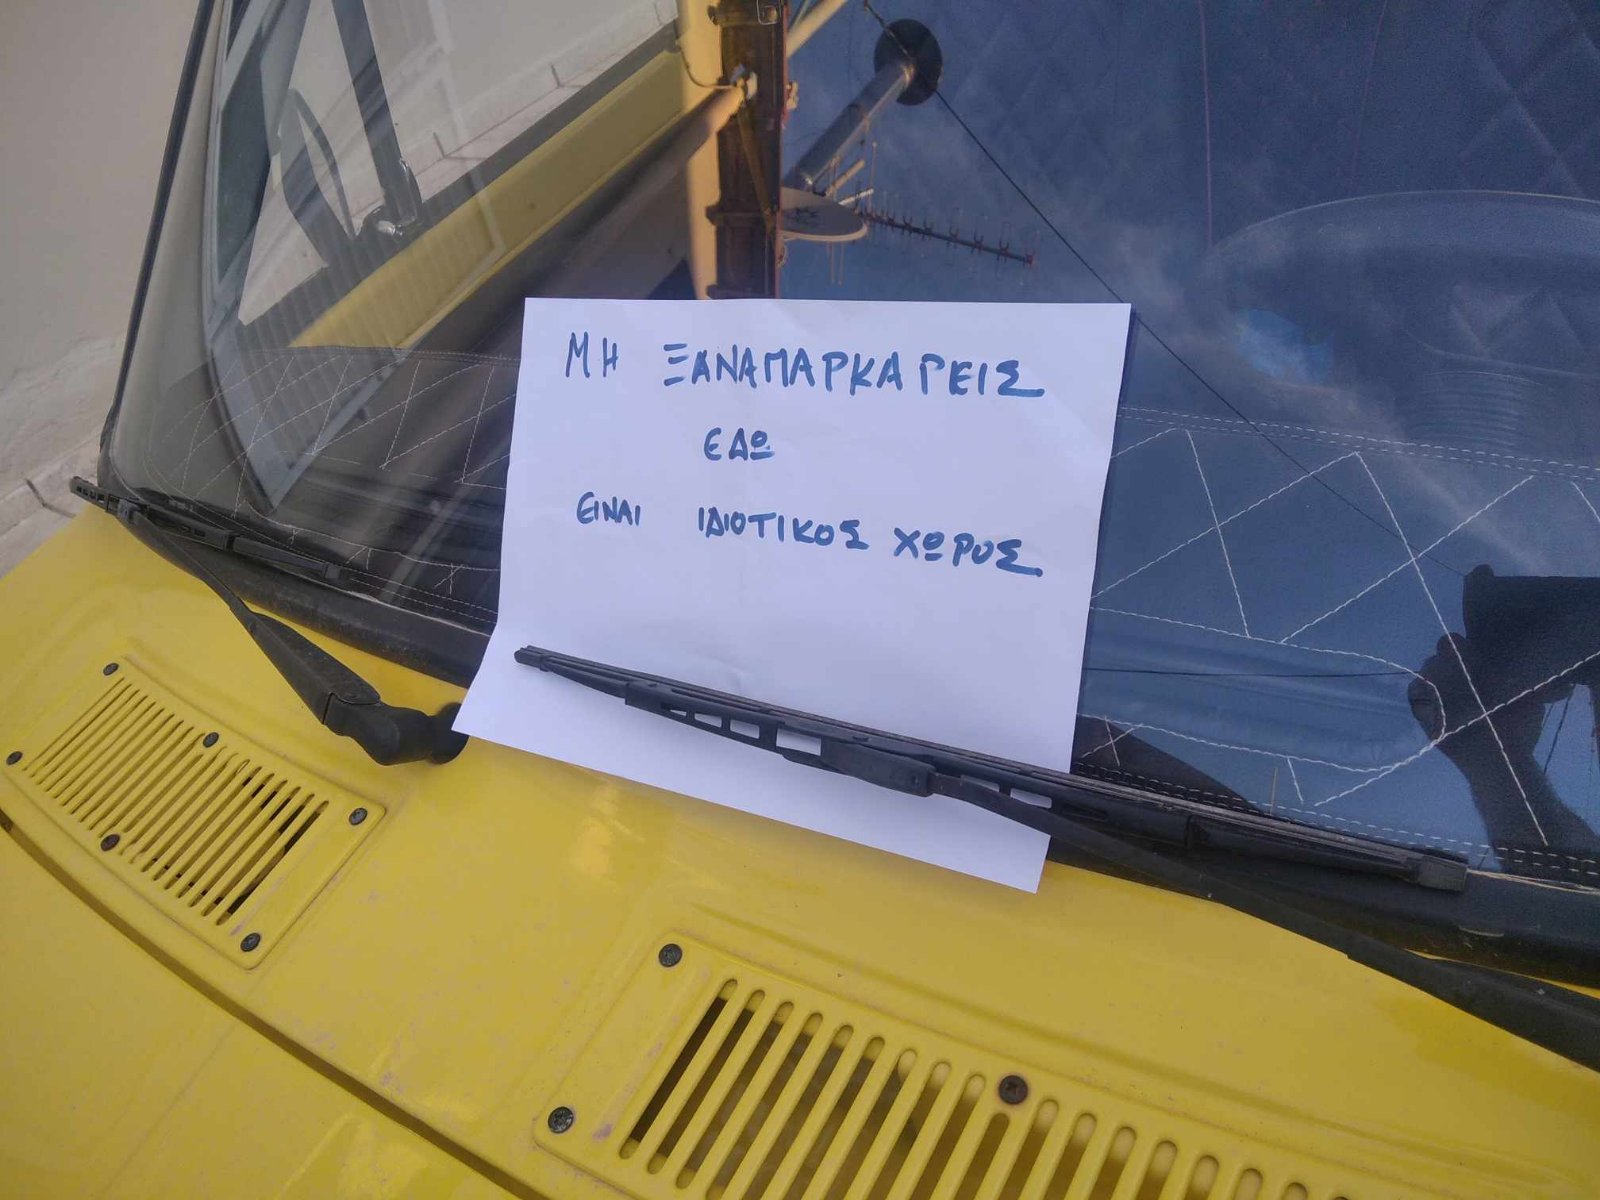 ΜΗ ΞΑΝΑΠΑΡΚΑΡΕΙΣ
ΕΔΩ
ΕΙΝΑΙ ΙΔΙΟΤΙΚΟΣ ΧΩΡΟΣ